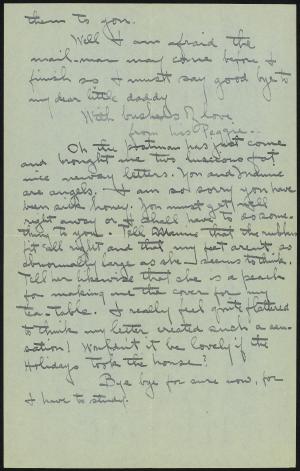 them to you.
Well I am afraid the
mail-man may come before I
finish so I must say good bye to
my dear little daddy
With bushels of love
from his Peggie..
Oh the Postman has just come
and brought me two luscious fat
nice newsy letters. You and
are angels. I am so sorry you have
been sick honey. You must get well
right away or I shall have to do some-
thing to you. Tell that the rubbers
fit all right and that my feet aren't as
abnormally large as she seems to think.
Tell her likewise that she is a peach
for making me the cover for my
tea-table. I really feel quite flattered
to think my letter created such a sen-
sation! Wouldn't it be lovely if the
Holidays took the house?
Bye bye for sure now, for
I have to study.